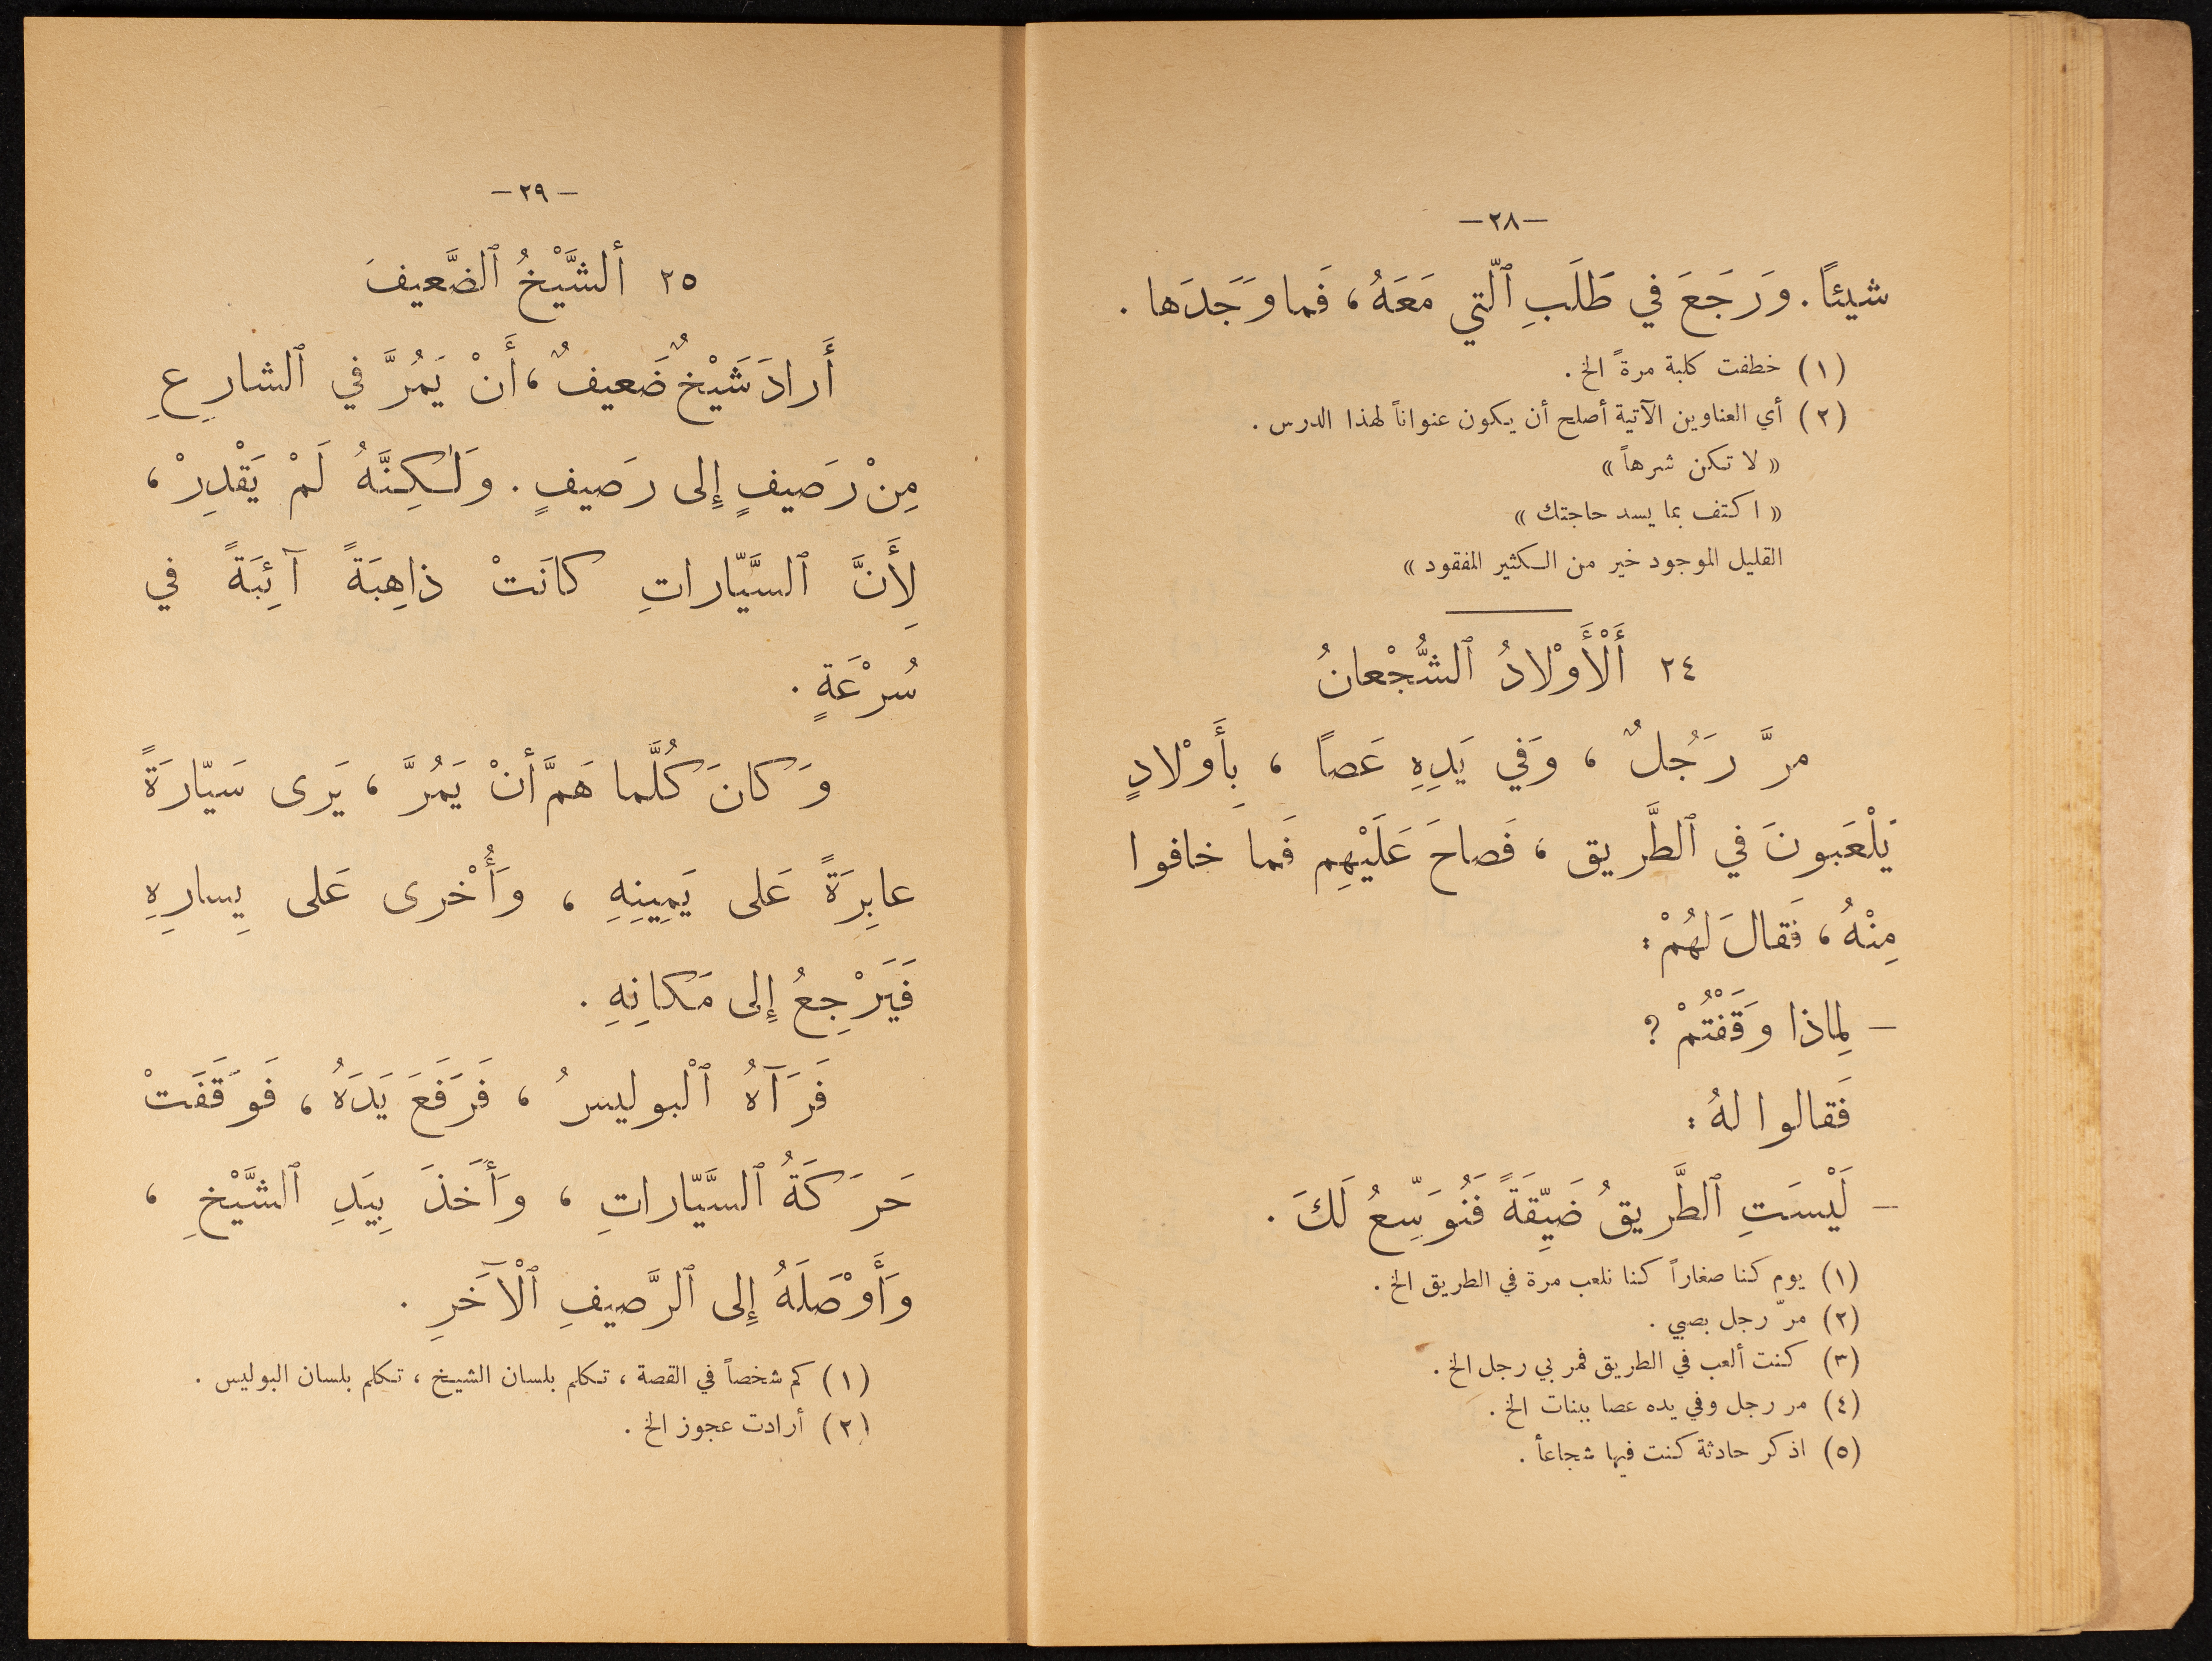 —٢٨—
شيئاً. وَرَجَعَ في طَلَبِ ٱلّتي مَعَهُ، فَما وَجَدَها.
(١) خطفت كلبة مرةً الخ.
(٢) أي العناوين الآتية أصلح أن يكون عنواناً لهذا الدرس.
«لا تكن شرهاً»
«اكتف بما يسد حاجتك»
القليل الموجود خير من الكثير المفقود»
٢٤ أَلْأَوْلادُ ٱلشُّجْعانُ
مرَّ رَجُلٌ، وَفي يَدِهِ عَصاً، بِأَوْلادٍ
يَلْعَبونَ في ٱلطَّريق، فَصاحَ عَلَيْهِم فَما خافوا
مِنْهُ، فَقالَ لهُمْ:
— لِماذا وَقَفْتُمْ؟
فَقالوا لهُ:
— لَيْسَتِ ٱلطَّريقُ ضَيِّقَةً فَنُوَسِّعُ لَكَ.
(١) يوم كنا صغاراً كنا نلعب مرة في الطريق الخ.
(٢) مرّ رجل بصبي.
(٣) كنت ألعب في الطريق فمر بي رجل الخ.
(٤) مر رجل وفي يده عصا ببنات الخ.
(٥) اذكر حادثة كنت فيها شجاعاً.
—٢٩—
٢٥ ألشَّيْخُ ٱلضَّعيفَ
أَرادَ شَيْخٌ ضَعيفٌ، أَنْ يَمُرَّ في ٱلشارِعِ
مِنْ رَصيفٍ إِلى رَصيفٍ. وَلٰكِنَّهُ لَمْ يَقْدِرْ،
لِأَنَّ ٱلسَّيّاراتِ كانَتْ ذاهِبَةً آئِبَةً في
سُرْعَةٍ.
وَكانَ كُلَّما هَمَّ أنْ يَمُرَّ، يَرى سَيّارَةً
عابِرَةً عَلى يَمِينِهِ، وَأُخْرى عَلى يِسارِهِ
فَيَرْجِعُ إِلى مَكانِهِ.
فَرَآهُ ٱلْبوليسُ، فَرَفَعَ يَدَهُ، فَوَقَفَتْ
حَرَكَةُ ٱلسَّيّاراتِ، وَأَخَذَ بِيَدِ ٱلشَّيْخِ،
وَأَوْصَلَهُ إِلى ٱلرَّصيفِ ٱلْآخَرِ.
(١) كم شخصاً في القصة، تكلم بلسان الشيخ، تكلم بلسان البوليس.
(٢) أرادت عجوز الخ.